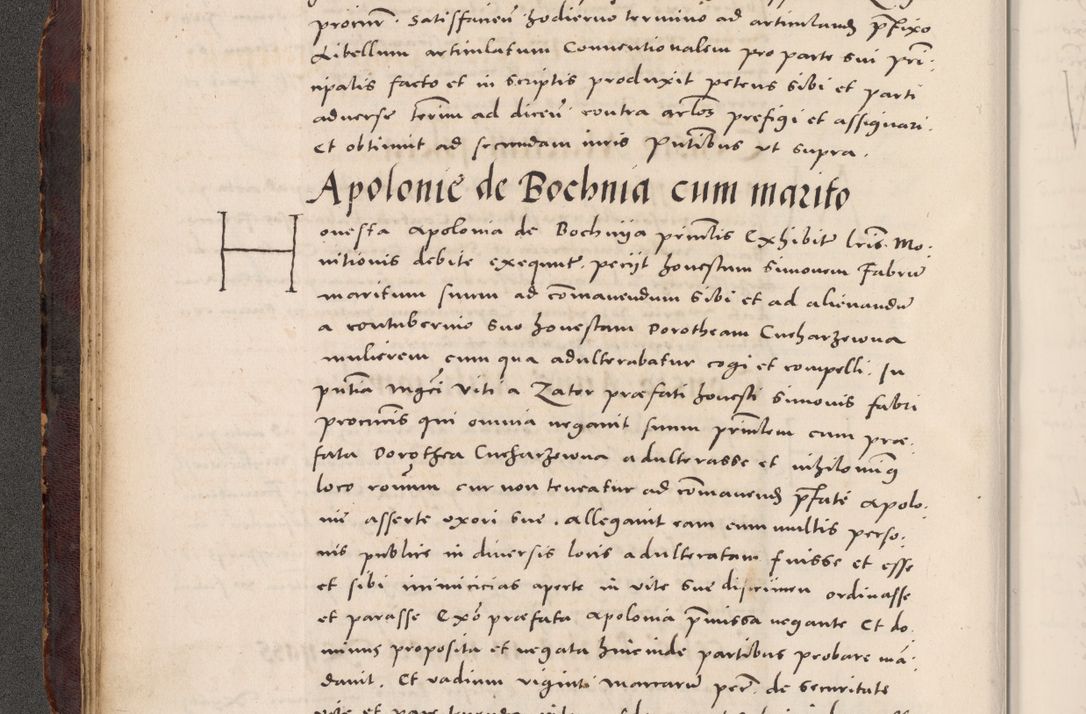 procur. Satisfaciens hodierno termino ad articulandum prefixo
Libellum articulatum Conventionalem pro parte sui prin:
cipalis facto et in scriptis produxit petens sibi et parti
adverse terminum ad dicendum contra articulos prefigi et assignari.
Et obtinuit ad secundam iuris presentibus ut supra.
Apolonie de Bochnia cum marito
Honesta Apolonia de Bochnya principalis Exhibitis literis Mo:
nitionis debite exequutis. petiit honestum Simonem Fabrum
maritum suum ad commanendum sibi et ad alienandum
a contubernio suo honestam Dorotheam Cucharzowna
mulierem cum qua adulterabatur cogi et compelli. In
presentia Magistri Viti a Zator præfati honesti Simonis fabri
procuratoris qui omnia negavit suum principalem cum præ:
fata Dorothea Cucharzowna adulterasse et nihilominus
loco rationum cur non teneatur ad commanendum prefate Apolo:
nie asserte uxori sue. Allegavit eam cum multis perso:
nis publice in diversis locis adulteratam fuisse et esse
et sibi inimicicias aperte in vite sue discrimen ordinasse
et parasse Ex quo præfata Apolonia premissa negante Et do:
minus proposita et negata hincinde partibus probare man:
davit. Et vadium viginti marcarum de securitate